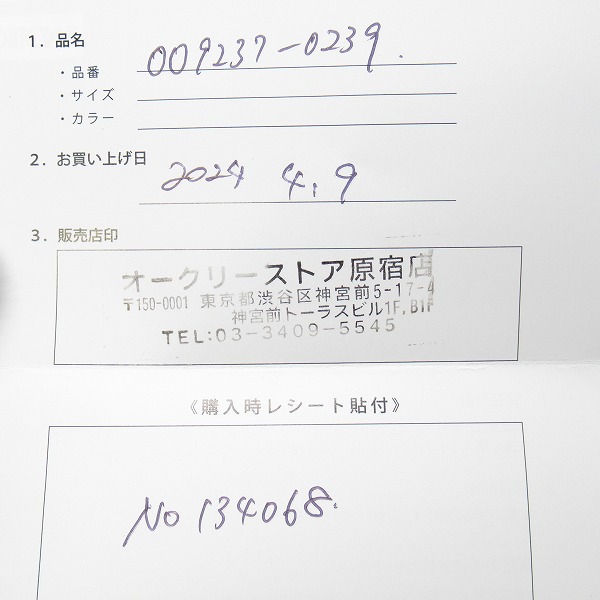 1. 品名
・品番 009237-0239.
・サイズ
・カラー
2. お買い上げ日 2024 4.9
3. 販売店印
オークリーストア原宿店
〒150-0001 東京都渋谷区神宮前5-17-4
神宮前トーラスビル1F,B1F
TEL:03-3409-5545
《購入時レシート貼付》
No 134068.